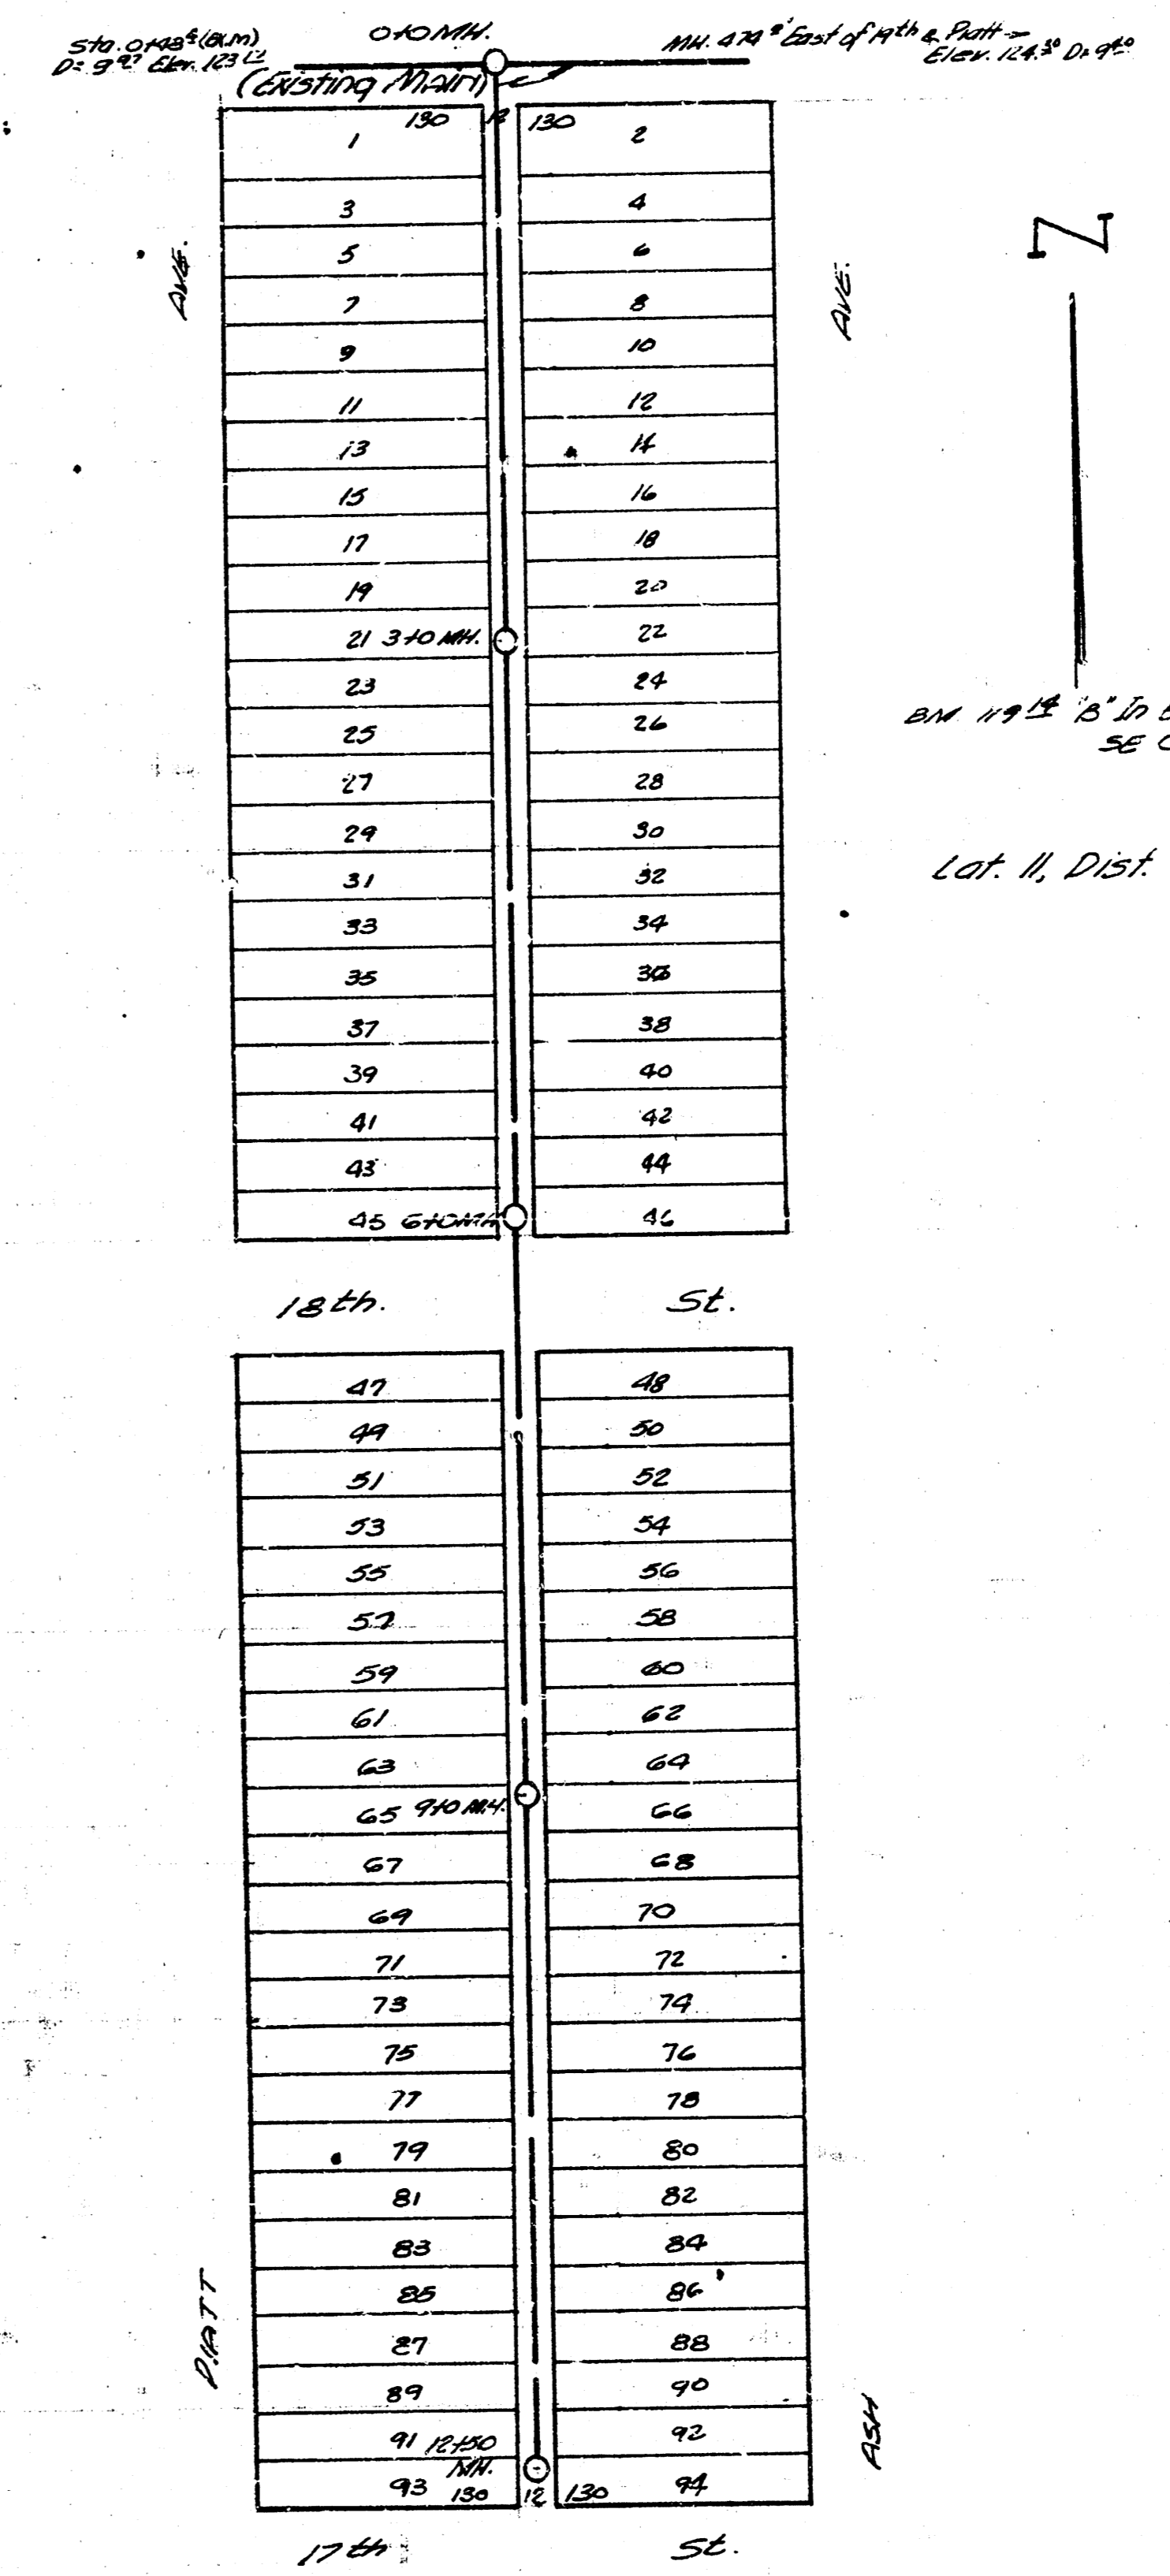 Sta. 0+48 (Bk.m)
D= 9.97 Elev. 123
0+0 MH.
MH. 474 East of 19th & Piatt
Elev. 124.30 D= 9.40
(Existing Main)
130 12 130
1 2
3 4
5 6
AVE. AVE.
7 8
9 10
11 12
13 14
15 16
17 18
19 20
21 3+0 MH. 22
23 24
25 26
27 28
29 30
31 32
33 34
35 36
37 38
39 40
41 42
43 44
45 6+0 MH 46
N
BM 119.14 "B" In
SE
Lat. 11, Dist.
18th. St.
47 48
49 50
51 52
53 54
55 56
57 58
59 60
61 62
63 64
65 9+0 M.H. 66
67 68
69 70
71 72
73 74
75 76
77 78
79 80
81 82
83 84
85 86
87 88
89 90
91 12+50 92
MH.
93 130 12 130 94
PIATT
ASH
17th St.